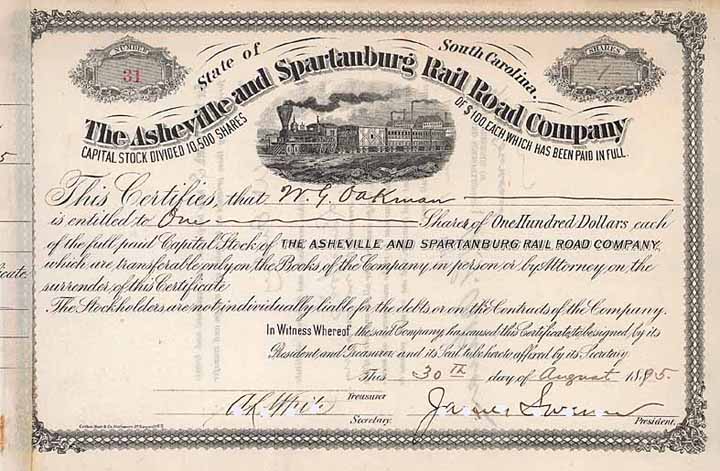 NUMBER
31
State of South Carolina.
SHARES
1
The Asheville and Spartanburg Rail Road Company
CAPITAL STOCK DIVIDED 10,500 SHARES OF $100, EACH, WHICH HAS BEEN PAID IN FULL.
This Certifies, that W. G. Oakman
is entitled to One Shares of One Hundred Dollars each
of the full paid Capital Stock of THE ASHEVILLE AND SPARTANBURG RAIL ROAD COMPANY,
which are transferable only on the Books of the Company, in person or by Attorney on the
surrender of this Certificate
The Stockholders are not individually liable for the debts or on the Contracts of the Company.
In Witness Whereof, the said Company, has caused this Certificate, to be signed, by its
President and Treasurer and its Seal to be hereto affixed by its Secretary.
This 30TH day of August 1895.
Treasurer
Secretary.
President.